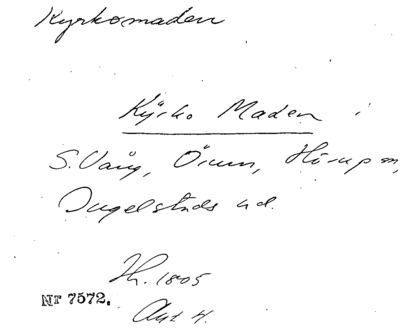 Kyrkomaden
Kÿrko Maden i
S. Vång, Örum, Hörup m,
Ingelstads hd.
Hh. 1805
Nr 7572.
Akt 4.